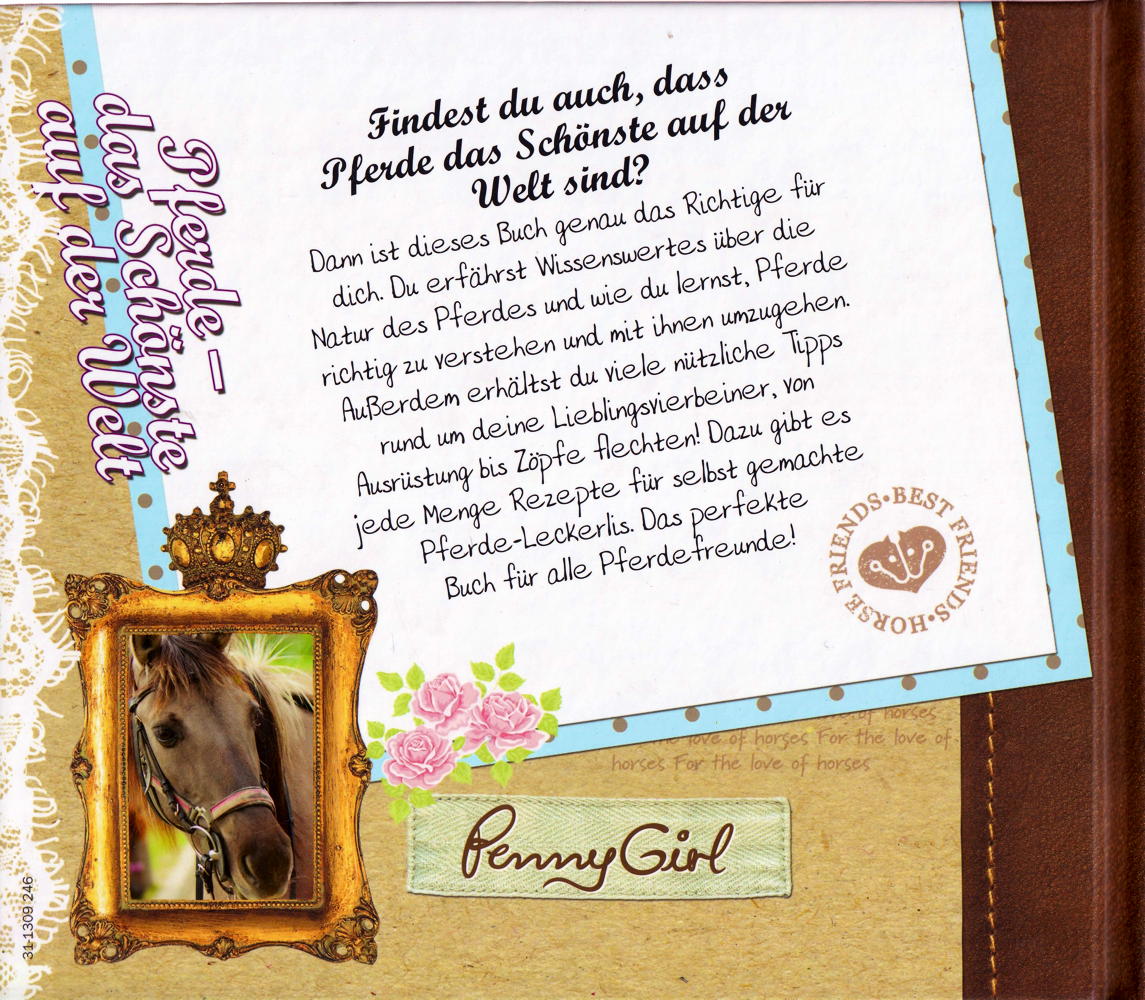 Pferde –
das Schönste
auf der Welt
Findest du auch, dass
Pferde das Schönste auf der
Welt sind?
Dann ist dieses Buch genau das Richtige für
dich. Du erfährst Wissenswertes über die
Natur des Pferdes und wie du lernst, Pferde
richtig zu verstehen und mit ihnen umzugehen.
Außerdem erhältst du viele nützliche Tipps
rund um deine Lieblingsvierbeiner, von
Ausrüstung bis Zöpfe flechten! Dazu gibt es
jede Menge Rezepte für selbst gemachte
Pferde-Leckerlis. Das perfekte
Buch für alle Pferdefreunde!
BEST FRIENDS•HORSE FRIENDS•
of horses
love of horses For the love of
horses For the love of horses
Penny Girl
31-1309 246